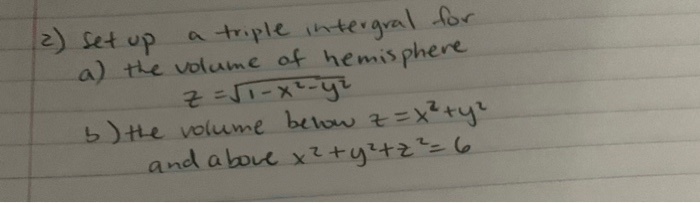 2) Set up a triple intergral for
a) the volume of hemisphere
z = √1-x²-y²
b) the volume below z = x² + y²
and above x² + y² + z² = 6